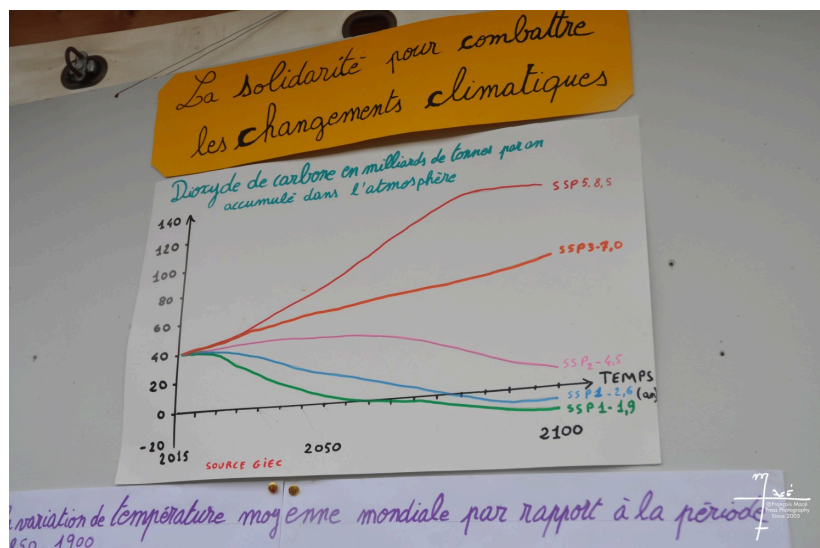 La solidarité pour combattre
les changements climatiques
Dioxyde de carbone en milliards de tonnes par an
accumulé dans l'atmosphère
140
120
100
80
60
40
20
0
-20
2015
2050
2100
SSP5.8,5
SSP3-7,0
SSP2-4,5
TEMPS
(an)
SSP1-2,6
SSP1-1,9
SOURCE GIEC
variation de température moyenne mondiale par rapport à la période
1900
macé
©François Macé
Press Photography
Since 2005